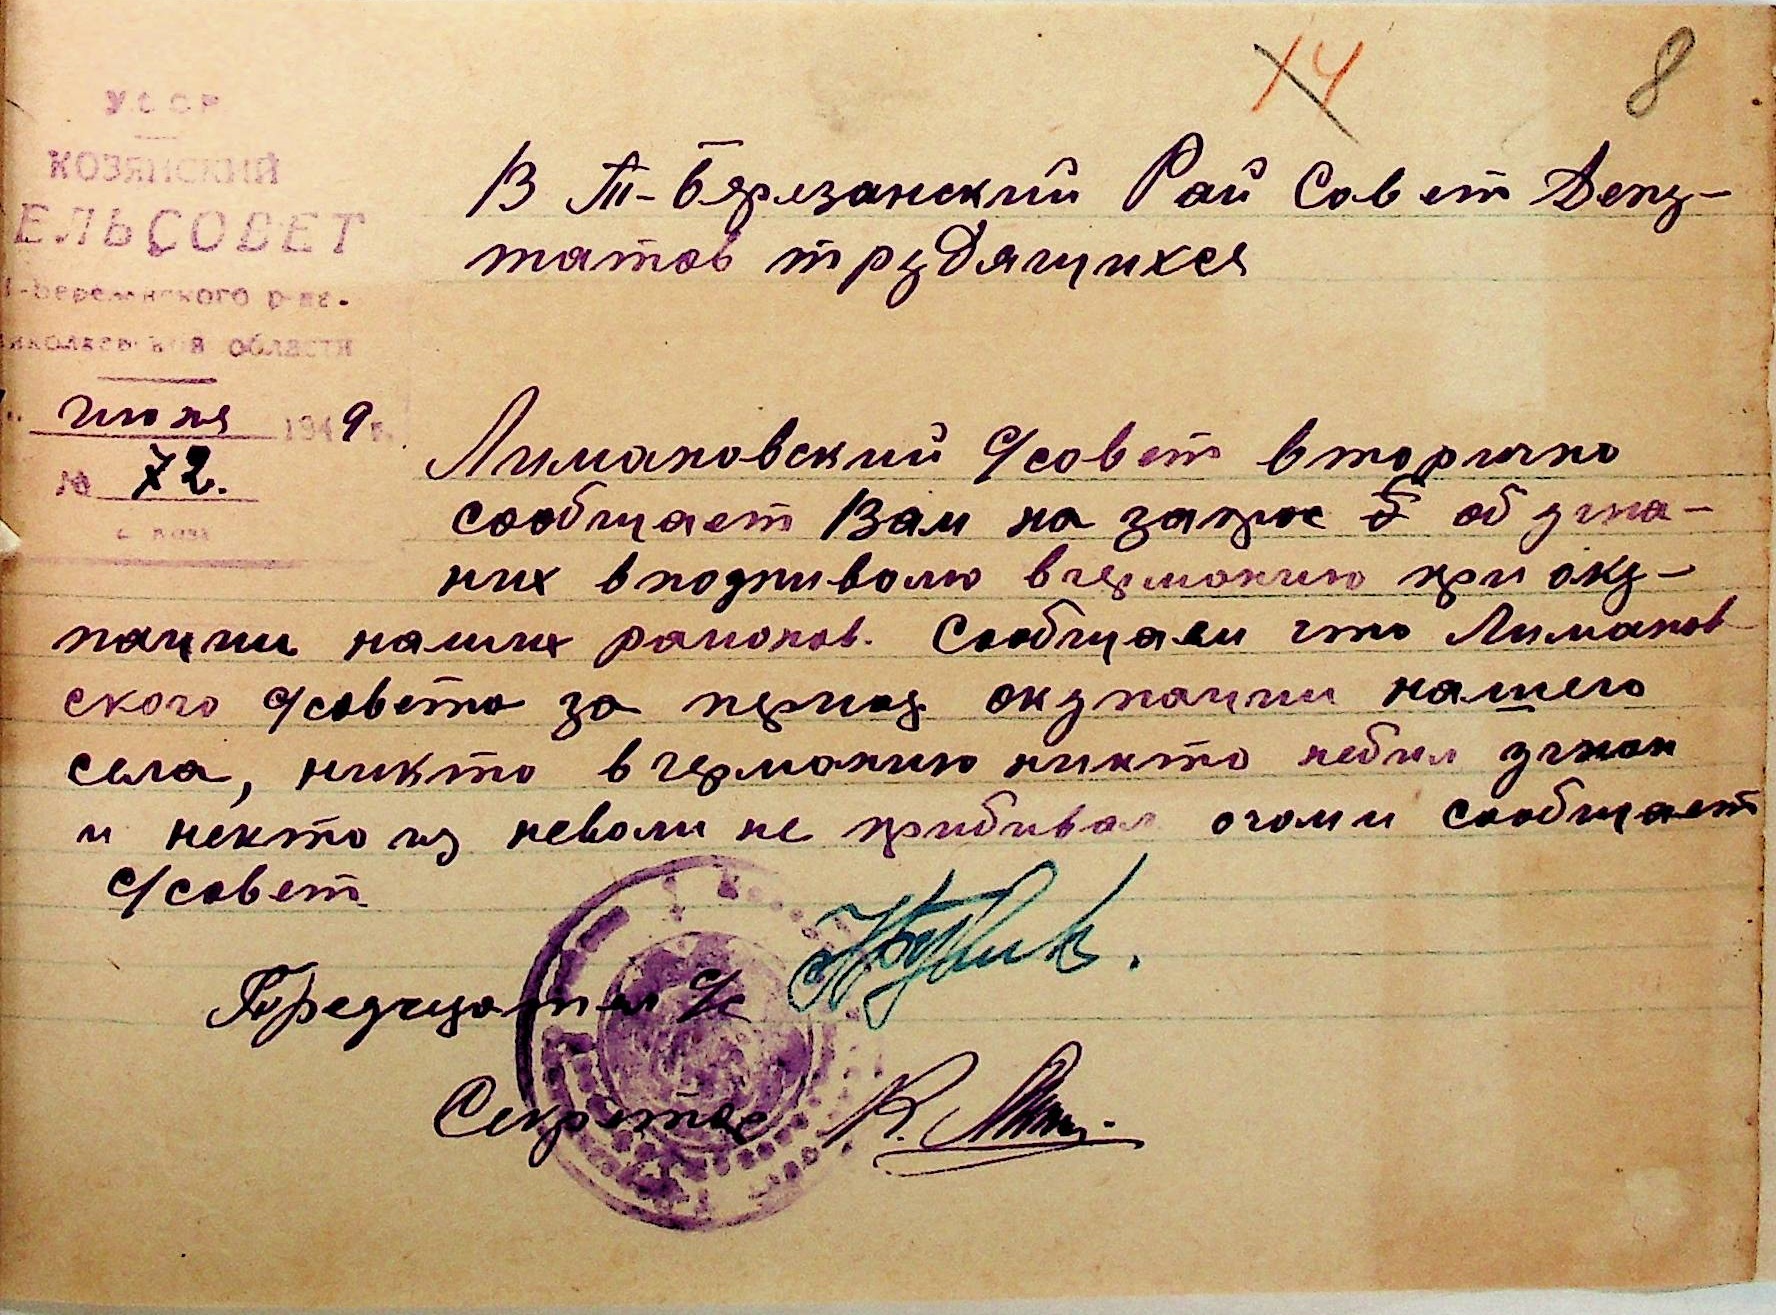 14
8
УССР
КОЗЯНСКИЙ
ЕЛЬСОВЕТ
области
июня 1949 г.
№ 72.
В Т-Бярязанский Рай Совет Депу-
татов трудящихся
Лимановский с/совет вторично
сообщает Вам на запрос об угна-
них в подниволю в германию при оку-
пации наших районов. Сообщаем что Лиманов-
ского с/совета за период окупации нашего
села, никто в германию никто небил угнан
и некто из неволи не прибивал очоми сообщает
с/совет
Предсидатель с/с
Секретарь К.